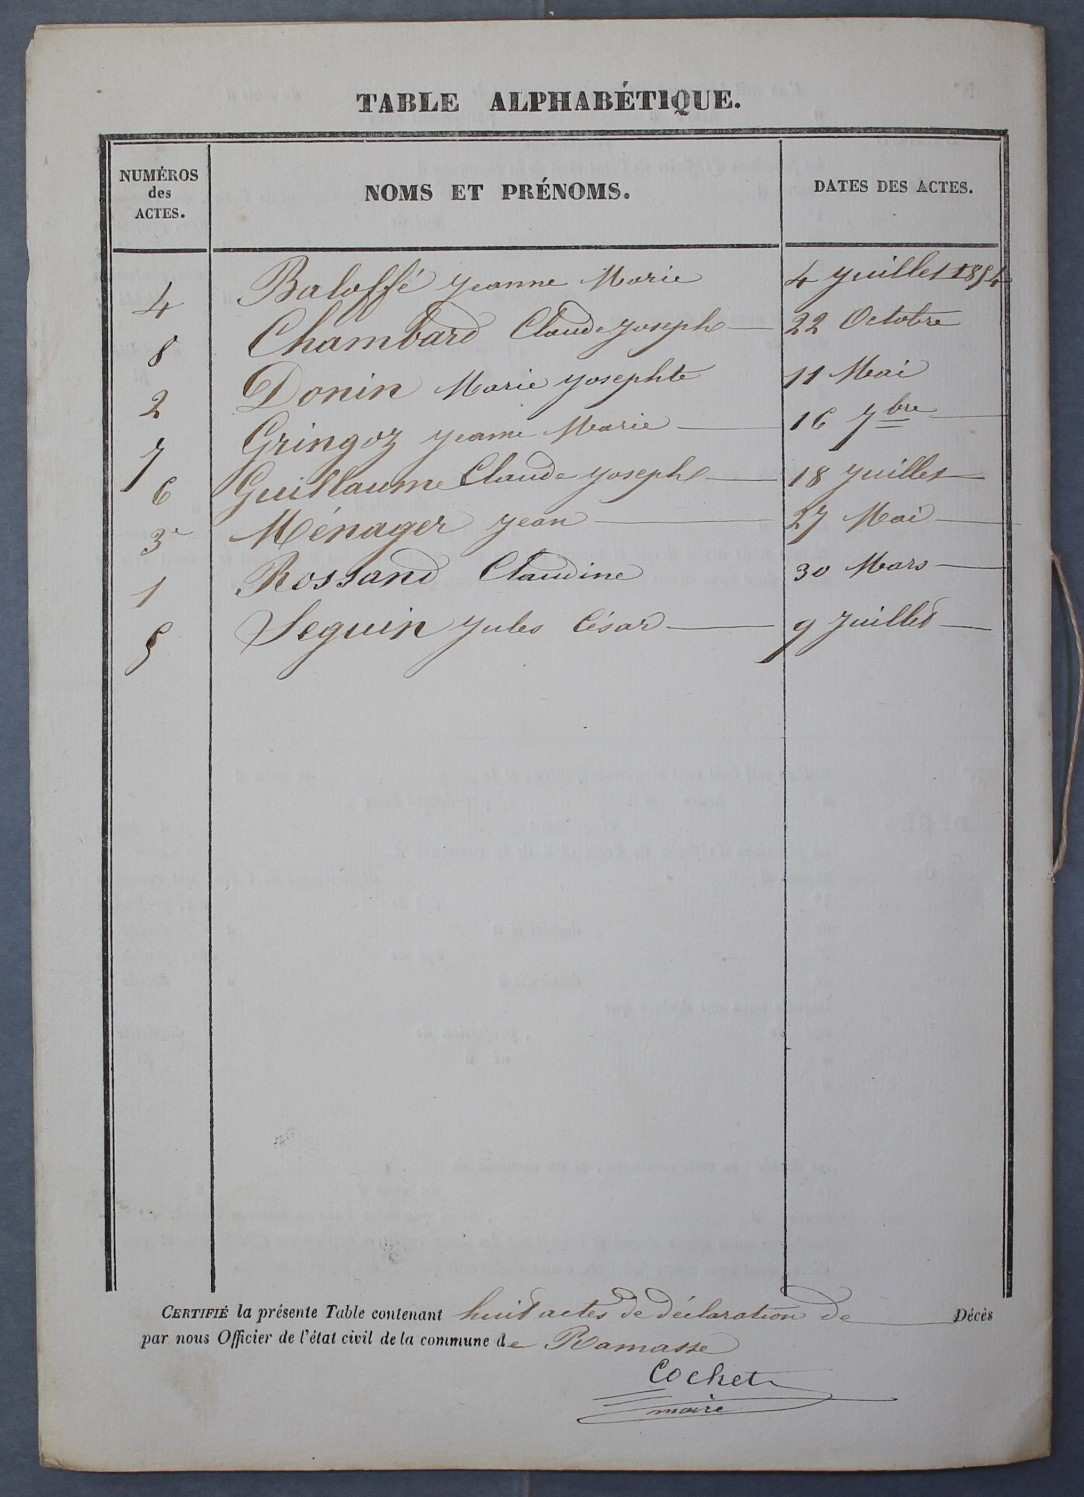 TABLE ALPHABÉTIQUE.
NUMÉROS des ACTES. NOMS ET PRÉNOMS. DATES DES ACTES.
4 Baloffé Jeanne Marie 4 Juillet 1854
8 Chambard Claude Joseph 22 Octobre
2 Donin Marie Josephte 11 Mai
7 Gringoz Jeanne Marie 16 7bre
6 Guillaume Claude Joseph 18 Juillet
3 Ménager Jean 27 Mai
1 Rossand Claudine 30 Mars
5 Seguin Jules César 9 Juillet
CERTIFIÉ la présente Table contenant huit actes de déclaration de Décès
par nous Officier de l'état civil de la commune de Ramasse
Cochet
maire